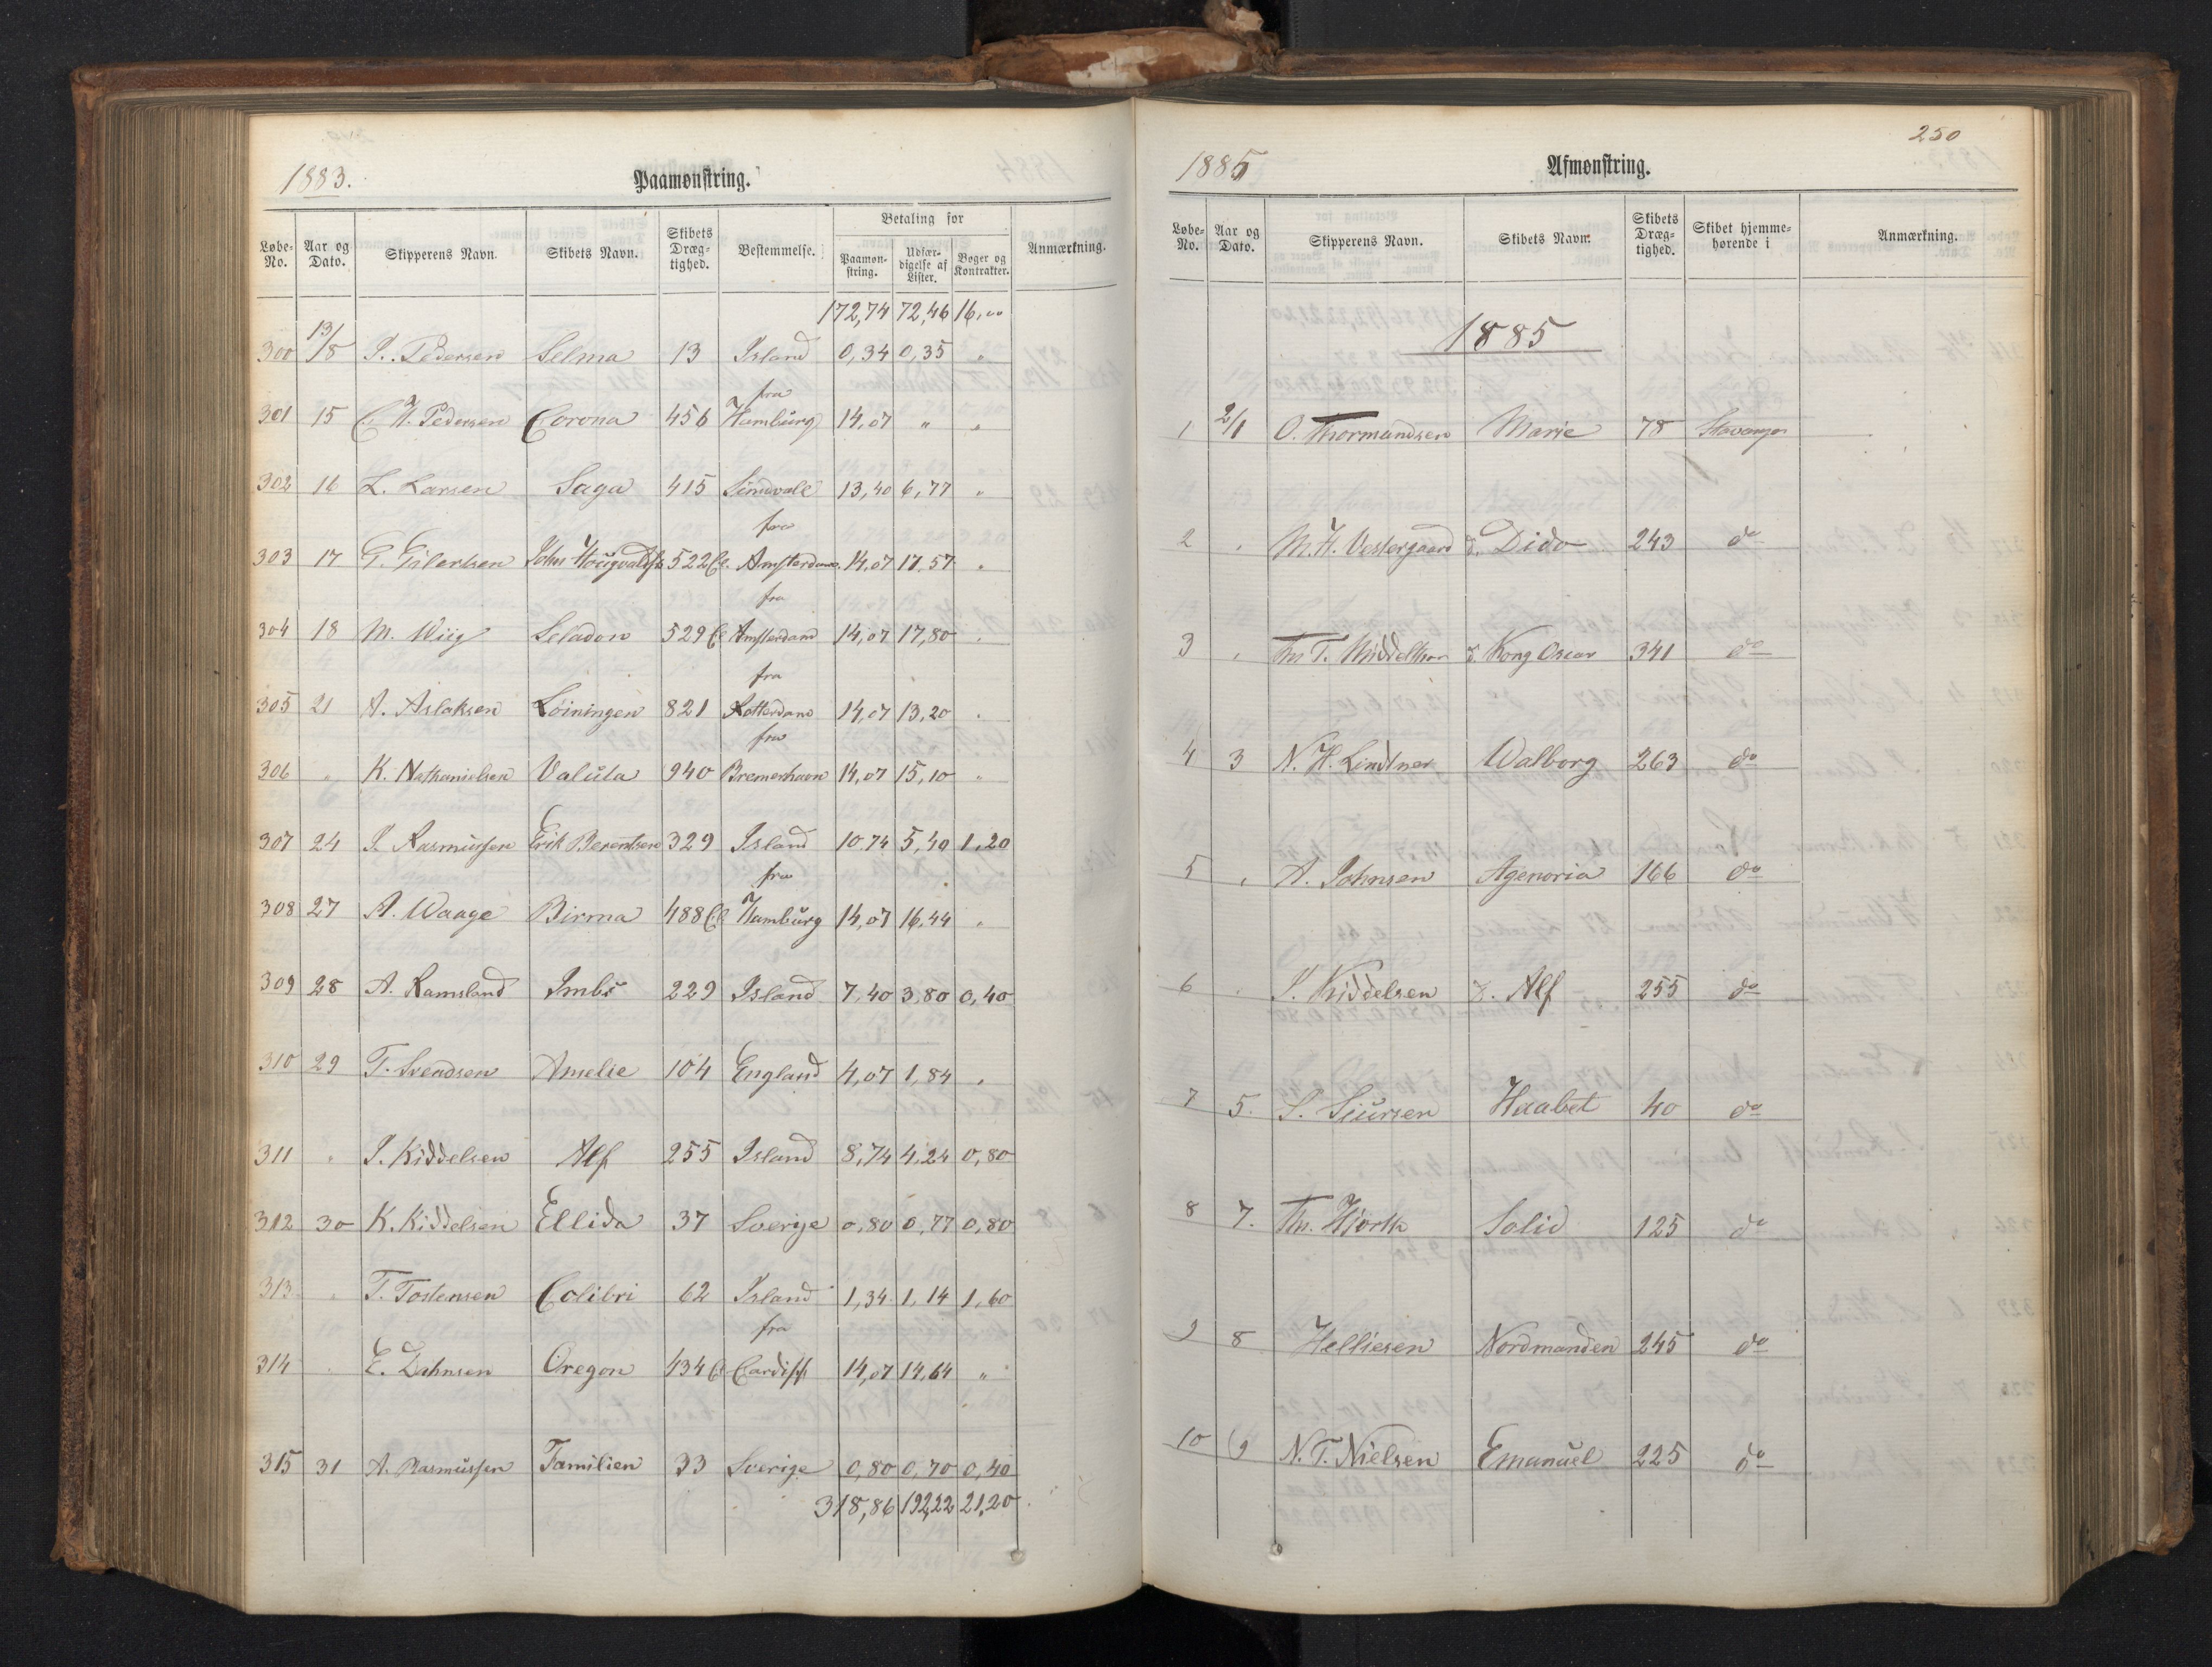 1883.
Paamønstring.
Løbe-No. Aar og Dato. Skipperens Navn. Skibets Navn. Skibets Dræg-tighed. Bestemmelse. Betaling for Anmærkning.
Paamøn-string. Udfær-digelse af Lister. Bøger og Kontrakter.
172,74 72,46 16,00
300 13/8 J. Pedersen Selma 13 Island 0,34 0,35 "
fra
301 15 C. H. Pedersen Corona 456 Hamburg 14,07 " "
302 16 L. Larsen Saga 415 13,40 6,77 "
fra
303 17 G. Eilertsen John 522 Cl. Amsterdam 14,07 17,57 "
fra
304 18 M. Wiig Seladon 529 Cl Amsterdam 14,07 17,80 "
fra
305 21 A. Aslaksen Loiningen 821 Rotterdam 14,07 13,20 "
fra
306 " K. Nathanielsen Valuta 940 Bremerhavn 14,07 15,10 "
307 24 J. Rasmussen Erik Berentsen 329 Island 10.74 5,40 1,20
fra
308 27 A. Waage Birma 488 Cl Hamburg 14,07 16,44 "
309 28 A. Ramsland 229 Island 7,40 3,80 0,40
310 29 T. Svendsen Amelie 104 England 4,07 1,84 "
311 " J. Kiddelsen Alf 255 Island 8,74 4,24 0,80
312 30 K. Kiddelsen Ellida 37 Sverige 0,80 0,77 0,80
313 " T. Tostensen Colibri 62 Island 1,34 1,14 1,60
fra
314 " E. Oregon 434 Cl Cardiff 14,07 14,64 "
315 31 A. Rasmussen Familien 33 Sverige 0,80 0,70 0,40
318,86 192,22 21,20
250
1885
Afmønstring.
Løbe-No. Aar og Dato. Skipperens Navn. Skibets Navn. Skibets Dræg-tighed. Skibet hjemme-hørende i Anmærkning.
1885
1 2/1 O. Thormundsen Marie 78 Stavanger
2 " M. H. Vestergaard D. Dido 243 do
3 " Ths T. Middelthon D. Kong Oscar 341 do
4 3 N. H. Lindtner Walborg 263 do
5 " A. Johnsen Agenoria 166 do
6 " J. Kiddelsen D. Alf 255 do
7 5. S. Siursen Haabet 40 do
8 7. Th. Hjorth Solid 125 do
9 8 Helliesen Nordmanden 245 do
10 9 N. T. Nielsen Emanuel 225 do